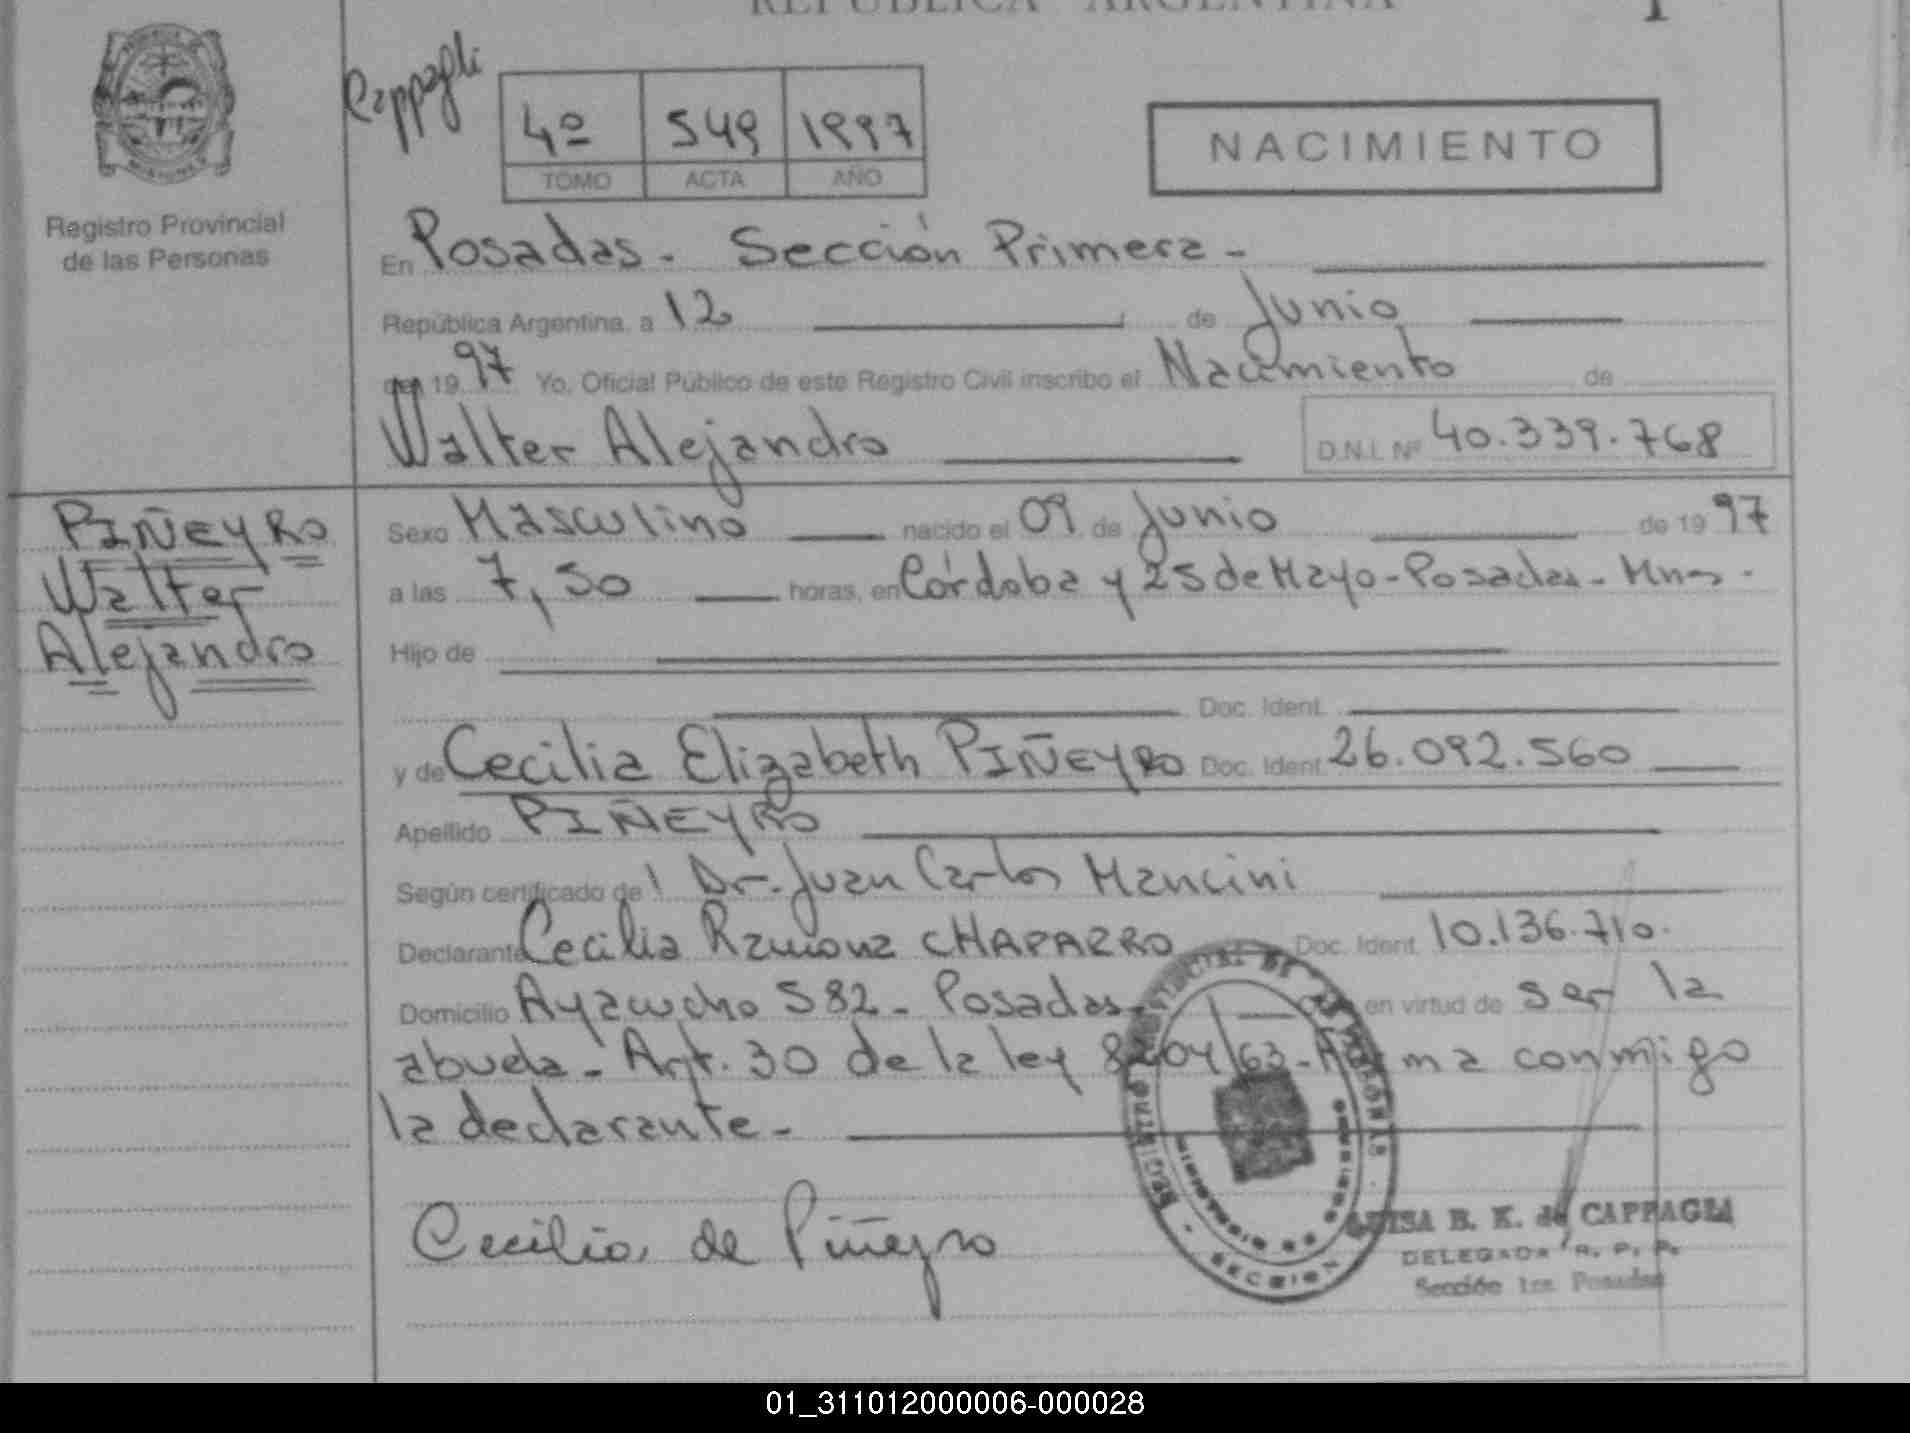 REPUBLICA ARGENTINA
Cappagli
4º 549 1997
TOMO ACTA AÑO
NACIMIENTO
Registro Provincial
de las Personas
En Posadas - Sección Primera -
República Argentina, a 12 de Junio
de 19 97 Yo, Oficial Público de este Registro Civil inscribo el Nacimiento de
Walter Alejandro D.N.I. Nº 40.339.768
PIÑEYRO
Walter
Alejandro
Sexo Masculino nacido el 09 de Junio de 19 97
a las 7,50 horas, en Córdoba y 25 de Mayo - Posadas - Mnes -
Hijo de
Doc. Ident.
y de Cecilia Elizabeth PIÑEYRO Doc. Ident. 26.092.560
Apellido PIÑEYRO
Según certificado de l Dr. Juan Carlos Mancini
Declarante Cecilia Ramona CHAPARRO Doc. Ident. 10.136.710.
Domicilio Ayacucho 582 - Posadas - en virtud de ser la
abuela - Art. 30 de la ley 8204/63 - Firma conmigo
la declarante -
Cecilia de Piñeyro
LUISA B. K. de CAPPAGLI
DELEGADA R. P. P.
Sección 1ra. Posadas
SECCION
01_311012000006-000028